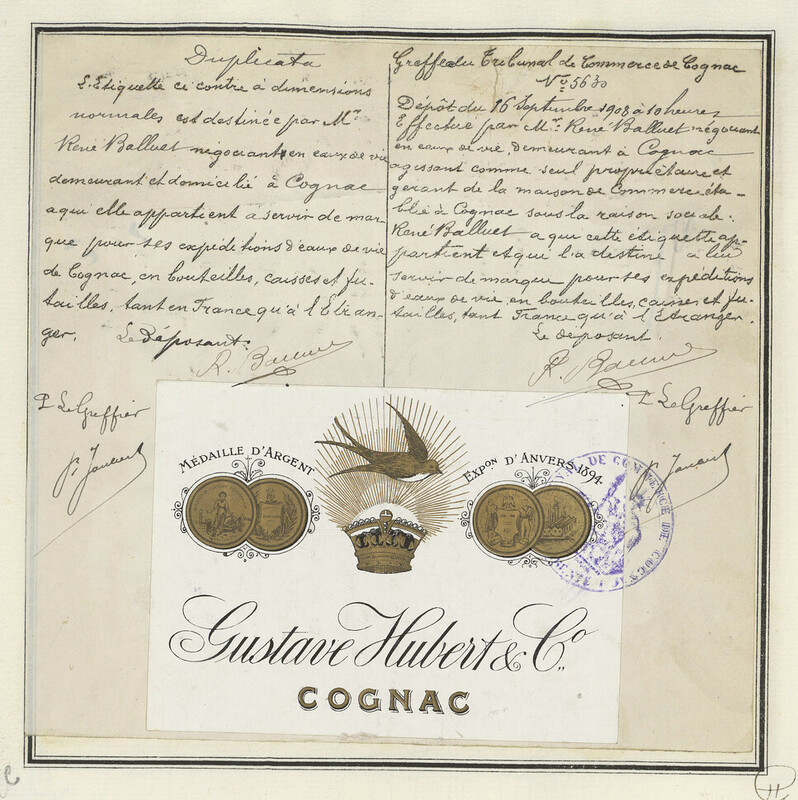 Duplicata
L'Etiquette ci contre à dimensions
normales est destinée par Mr.
René Balluet négociant en eaux de vie
demeurant et domicilié à Cognac
a qui elle appartient a servir de mar-
que pour ses expéditions d'eaux de vie
de Cognac, en bouteilles, caisses et fu-
tailles, tant en France qu'à l'Etran-
ger. Le déposant:
Pr Le Greffier
Greffe du Tribunal de Commerce de Cognac
No. 5630
Dépôt du 16 Septembre 1908 à 10 heures
Effectué par Mr. René Balluet négociant
en eaux de vie, demeurant à Cognac
agissant comme seul propriétaire et
gérant de la maison de Commerce éta-
blie à Cognac sous la raison sociale.
René Balluet a qui cette étiquette ap-
partient et qui l'a destine a lui
servir de marque pour ses expéditions
d'eaux de vie, en bouteilles, caisses et fu-
tailles, tant France qu'à l'Etranger.
Le déposant.
Pr Le Greffier
MÉDAILLE D'ARGENT
EXPON D'ANVERS 1894.
DE COMMERCE DE COGN
Gustave Hubert & Co
COGNAC